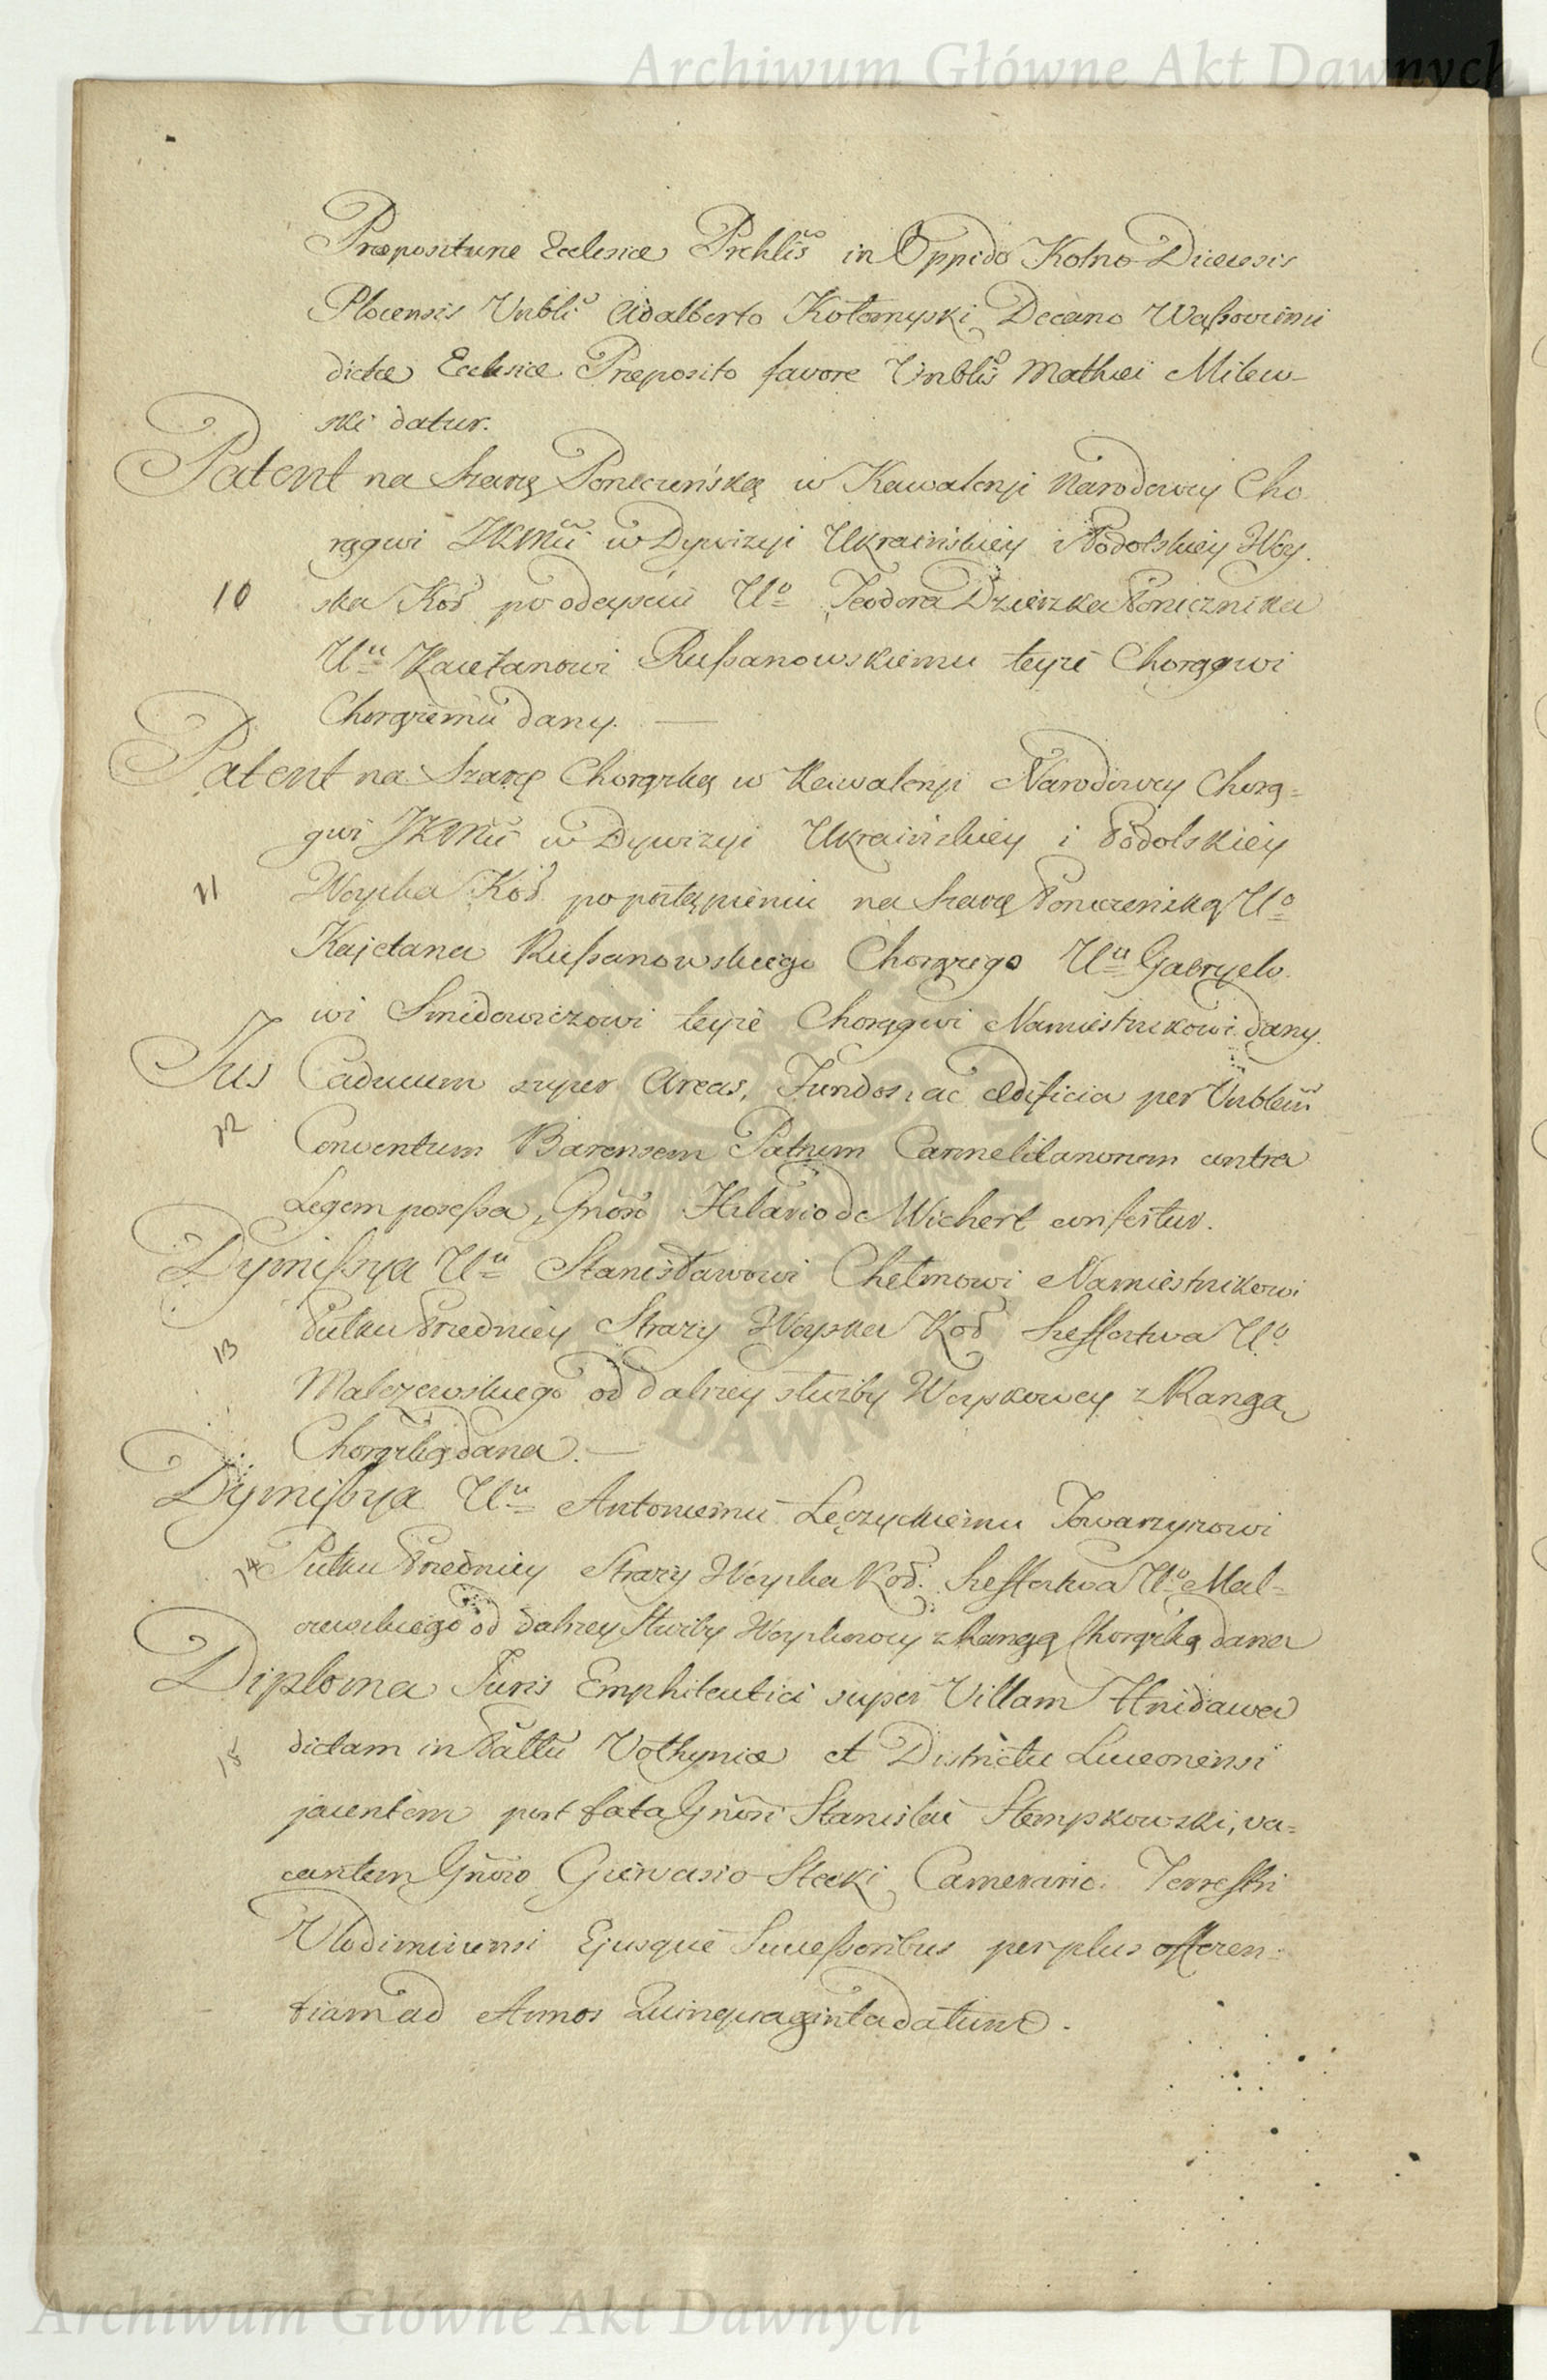 Archiwum Główne Akt Dawnych
Præpositurae Ecclesiæ Prchlis in Oppido Kolno Diecesis
Plocensis Vnbli Adalberto Kołomyski Decano Waſsoviensi
dictæ Ecclesiæ Præposito favore Vnblis Mathæi Milew-
ski datur.
Patent na Szarżę Porucznińską w Kawaleryi Narodowey Cho
rągwi JKMci w Dywizyi Ukraińskiey i Podolskiey Woy.
10 ska Koŏ po odeyściu Uº Teodora Dzieszka Porucznika
Uu Kaietanowi Ruſsanowskiemu teyże Chorągwi
Chorążemu dany.
Patent na Szarżę Chorążską w Kawaleryi Narodowey Chorą=
gwi JKMci w Dywizyi Ukraińskiey i Podolskiey
11 Woyska Koŏ po postąpieniu na Szarżę Poruczeńską Uº
Kajetana Ruſsanowskiego Chorążego Uu Gabryelo
wi Smidowiczowi teyże Chorągwi Namiestnikowi dany.
Jus Caducum super Areas, Fundos, ac ædificia per Vnblem
12 Conventum Barensem Patrum Carmelitanorum contra
Legem poseſsa, Gnoso Hilario de Wichert confertur.
Dymiſsya Uu Stanisławowi Chełmowi Namiestnikowi
13 Pułku Przedniey Straży Woyska Koŏ Szeffostwa Uº
Malczewskiego od dalszey służby Woyskowey z Rangą
Chorążską dana.
Dymiſsya Uu Antoniemu Łęczyckiemu Towarzyszowi
14 Pułku Przedniey Straży Woyska Koŏ. Szeffostwa Uº Mal=
czewskiego od dalszey służby Woyskowey z Rangą Chorążską dana
Diploma Juris Emphiteutici super Villam Hnidawa
15 dictam in Pallu Volhyniæ et Districtu Luceonensi
jacentem post fata Gnosi Stanislai Stempkowski, va=
cantem Gnoso Giervasio Stecki Camerario Terreſtri
Vlodimiriensi Ejusque Succeſsoribus per plus offeren=
tiam ad Annos Quinquaginta datum.
Archiwum Główne Akt Dawnych